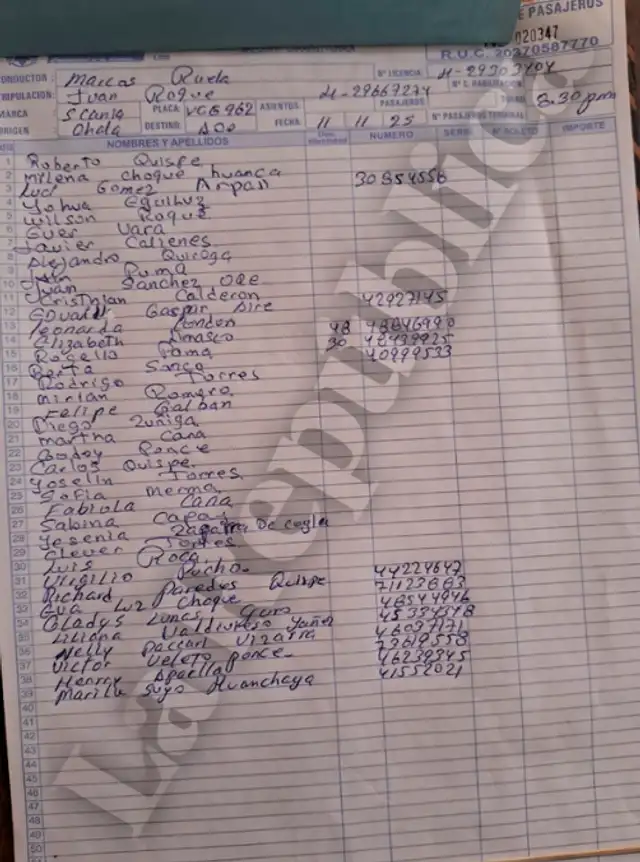 E PASAJEROS
020347
R.U.C. 20370587770
CONDUCTOR: Marcos Rueda Nº LICENCIA H-29303404
TRIPULACION: Juan Roque H-29669274 Nº E. HABILITACION
MARCA Scania PLACA: VCG962 ASIENTOS: PASAJEROS 8.30 pm
ORIGEN Chala DESTINO: AQP FECHA 11 11 25 Nº PASAJEROS TERMINAL
NOMBRES Y APELLIDOS NUMERO SERIE Nº BOLETO IMPORTE
1 Roberto Quispe
2 Milena Choque huanca
3 Luci Gomez Arpasi 30854556
4 Yohua Eguiluz
5 Wilson Roque
6 Guer Vara
7 Javier Callenes
8 Alejandro Quiroga
9 Juan Puma
10 Juan Sanchez
11 Cristhian Calderon
12 Eduardo Gaspar Dire 42927145
13 Leonarda Condon 48 48646990
14 Elizabeth Amasco 30 42439925
15 Rogelio Poma 40999533
16 Berta Sonco
17 Rodrigo Torres
18 Mirian Romero
19 Felipe Galban
20 Diego Zuñiga
21 Martha Cana
22 Godoy Ponce
23 Carlos Quispe
24 Yoselin Torres
25 Sofia Merma
26 Fabiola Caña
27 Sabina Capas
28 Yesenia Zapana De cayla
29 Clever Torres
30 Luis Roca
31 Virgilio Pucho 44224647
32 Richard Paredes Quispe 71123663
33 Eva Luz Choque 48544946
34 Gladys Lunas Guro 45334548
35 Liliana Valdivieso Yañez 46037171
36 Nelly Paccari Vizarra 79619558
37 Victor Veleto Ponce 46239345
38 Henrry Apaella 41552021
39 Marilu Suyo Huanchaya
40
41
42
43
44
45
46
47
48
49
50
La república